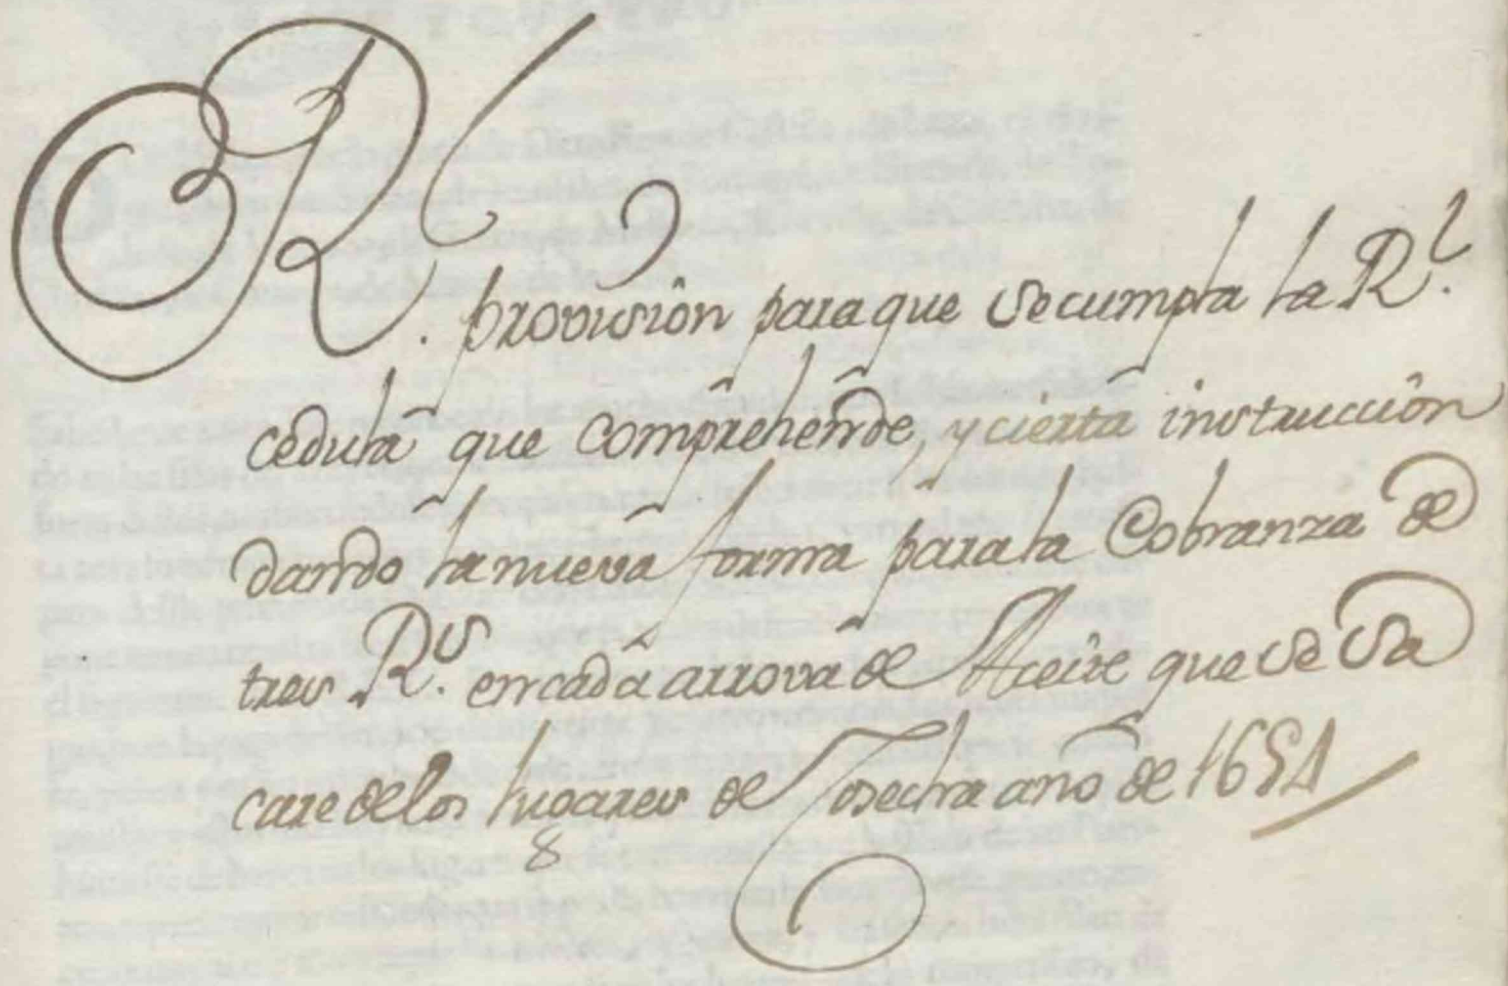 Rl. provision para que se cumpla la Rl.
cedula que comprehende, y cierta instruccion
dando la nueva forma para la Cobranza de
tres Rs. en cada arrova de Aceite que se Sa
care de los lugares de Cosecha año de 1651
8